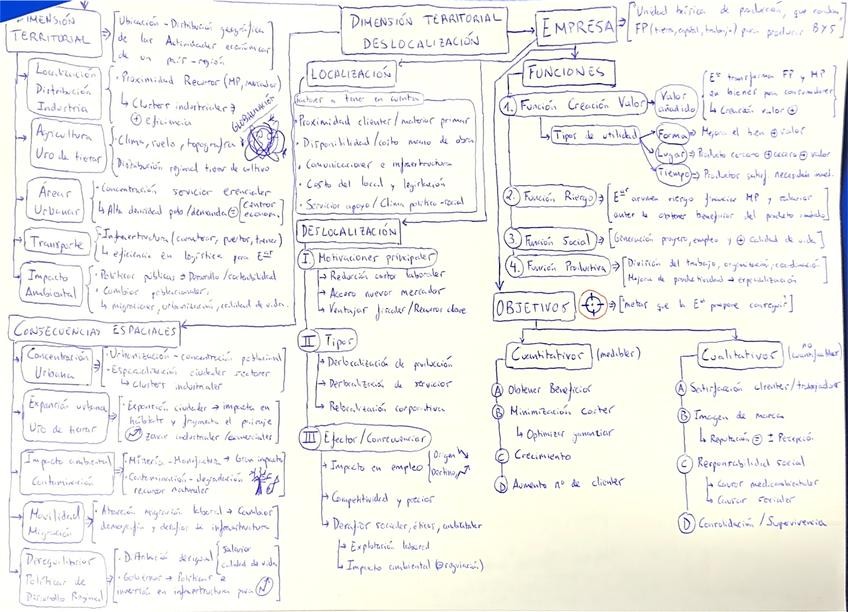 DIMENSIÓN
TERRITORIAL
Ubicación - Distribución geográfica
de las Actividades económicas
de un país - región
Localización
Distribución
Industria
· Proximidad Recursos (MP, mercados)
↳ Clusters industriales →
⊕ eficiencia
GLOBALIZACIÓN
Agricultura
Uso de tierras
· Clima, suelo, topografía
· Distribución regional tierras de cultivo
Áreas
Urbanas
· Concentración servicios esenciales
↳ Alta densidad pob/demanda = [Centros econom.]
Transporte
· Infraestructura (carreteras, puertos, trenes)
↳ eficiencia en logística para Eˢᵃˢ
Impacto
Ambiental
· Políticas públicas = Desarrollo/sostenibilidad
· Cambios poblacionales
↳ migraciones, urbanización, calidad de vida.
CONSECUENCIAS ESPACIALES
Concentración
Urbana
· Urbanización - concentración poblacional
· Especialización ciudades sectores
↳ Clusters industriales
Expansión urbana
Uso de tierras
· Expansión ciudades → impacta en
hábitats y fragmenta el paisaje
zonas industriales/comerciales
Impacto ambiental
Contaminación
· Minería - Manufactura → Gran impacto
· Contaminación - degradación
recursos naturales
Movilidad
Migración
· Atracción migración laboral → Cambios
demografía y desafíos de infraestructura
Desequilibrios
Políticas de
Desarrollo Regional
· Distribución desigual { salarios
calidad de vida
· Gobiernos → Políticas e
inversión en infraestructura para
DIMENSIÓN TERRITORIAL
DESLOCALIZACIÓN
LOCALIZACIÓN
Factores a tener en cuenta
· Proximidad clientes/materias primas
· Disponibilidad/costo mano de obra
· Comunicaciones e infraestructura
· Costo del local y legislación
· Servicios apoyo / Clima político-social
DESLOCALIZACIÓN
I. Motivaciones principales
→ Reducción costos laborales
→ Acceso nuevos mercados
→ Ventajas fiscales/Recursos clave
II Tipos
→ Deslocalización de producción
→ Deslocalización de servicios
→ Relocalización corporativa
III Efectos/Consecuencias
→ Impacto en empleo { Origen
Destino
→ Competitividad y precios
→ Desafíos sociales, éticos, ambientales
→ Explotación laboral
→ Impacto ambiental (⊖ regulación)
EMPRESA
["Unidad básica de producción, que combina
FP (tierra, capital, trabajo) para producir B y S"]
FUNCIONES
1. Función Creación Valor
Valor
añadido
Eˢᵃ transforma FP y MP
en bienes para consumidores
↳ Creación valor ⊕
Tipos de utilidad
Forma → Mejora el bien ⊕ valor
Lugar → Producto cercano ⊕ acceso ⊕ valor
Tiempo → Productos satisf. necesidades inmed.
2. Función Riesgo
Eˢᵃˢ asumen riesgo financiar MP y salarios
antes de obtener beneficios del producto vendido
3. Función Social → [Generación progreso, empleo y ⊕ calidad de vida]
4. Función Productiva
División del trabajo, organización, coordinación
Mejora de productividad → especialización
OBJETIVOS
["metas que la Eˢᵃ propone conseguir"]
Cuantitativos (medibles)
A Obtener Beneficios
B Minimización Costes
↳ Optimizar ganancias
C Crecimiento
D Aumento nº de clientes
Cualitativos (no cuantificables)
A Satisfacción clientes/trabajadores
B Imagen de marca
↳ Reputación = ± Percepción
C Responsabilidad social
→ Causas medioambientales
→ Causas sociales
D Consolidación / Supervivencia